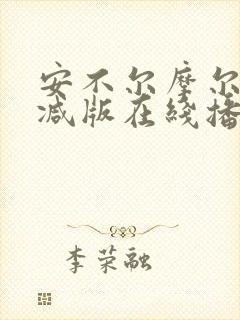 安不尔摩尔
减版在线播
李荣融